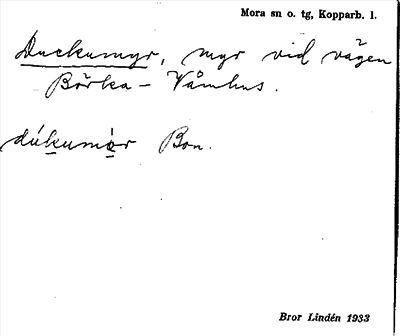 Mora sn o. tg, Kopparb. l.
Duckumyr, myr vid vägen
Börka - Våmhus.
dúkumòr Bon.
Bror Lindén 1933